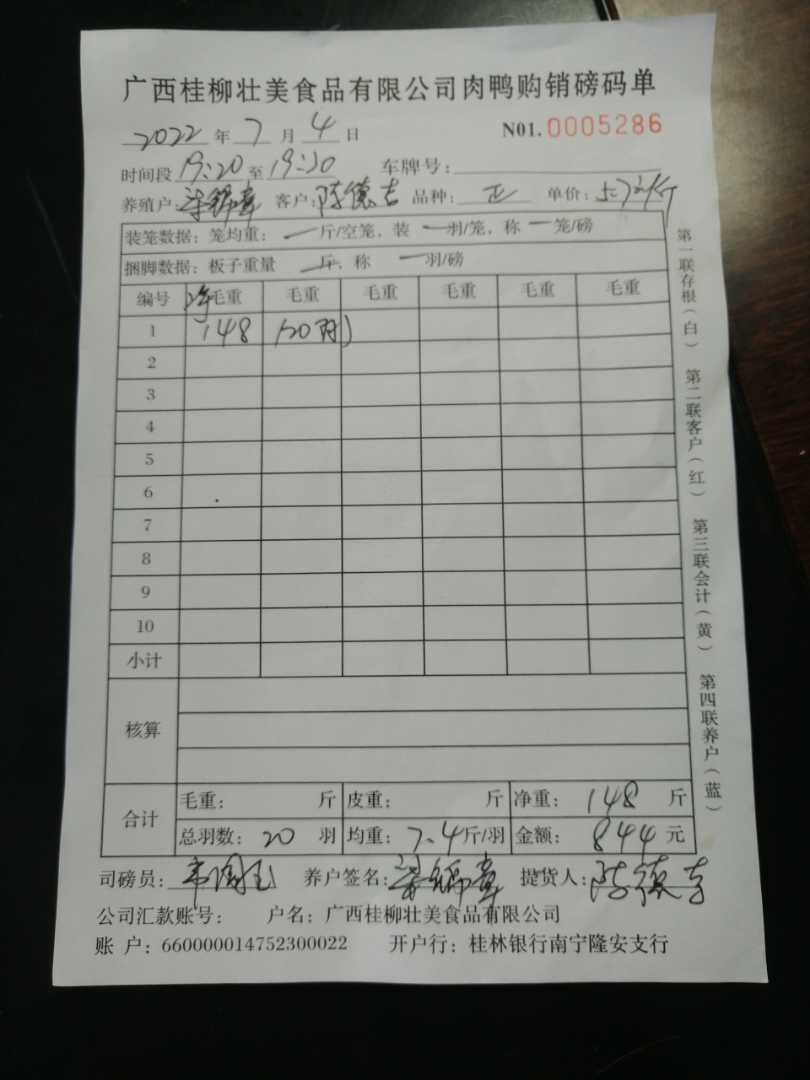 广西桂柳壮美食品有限公司肉鸭购销磅码单
2022 年 7 月 4 日 N01. 0005286
时间段 19:20 至 19:20 车牌号:
养殖户: 梁锦章 客户: 陈德吉 品种: 正 单价: 5.7元/斤
装笼数据: 笼均重: 一 斤/空笼, 装 一 羽/笼, 称 一 笼/磅
捆脚数据: 板子重量 一 斤, 称 一 羽/磅
编号 净毛重 毛重 毛重 毛重 毛重 毛重
1 148 (20羽)
2
3
4
5
6
7
8
9
10
小计
核算
合计 毛重: 斤 皮重: 斤 净重: 148 斤
总羽数: 20 羽 均重: 7.4 斤/羽 金额: 844 元
司磅员: 养户签名: 梁锦章 提货人: 陈德吉
公司汇款账号: 户名: 广西桂柳壮美食品有限公司
账 户: 660000014752300022 开户行: 桂林银行南宁隆安支行
第一联存根(白) 第二联客户(红) 第三联会计(黄) 第四联养户(蓝)